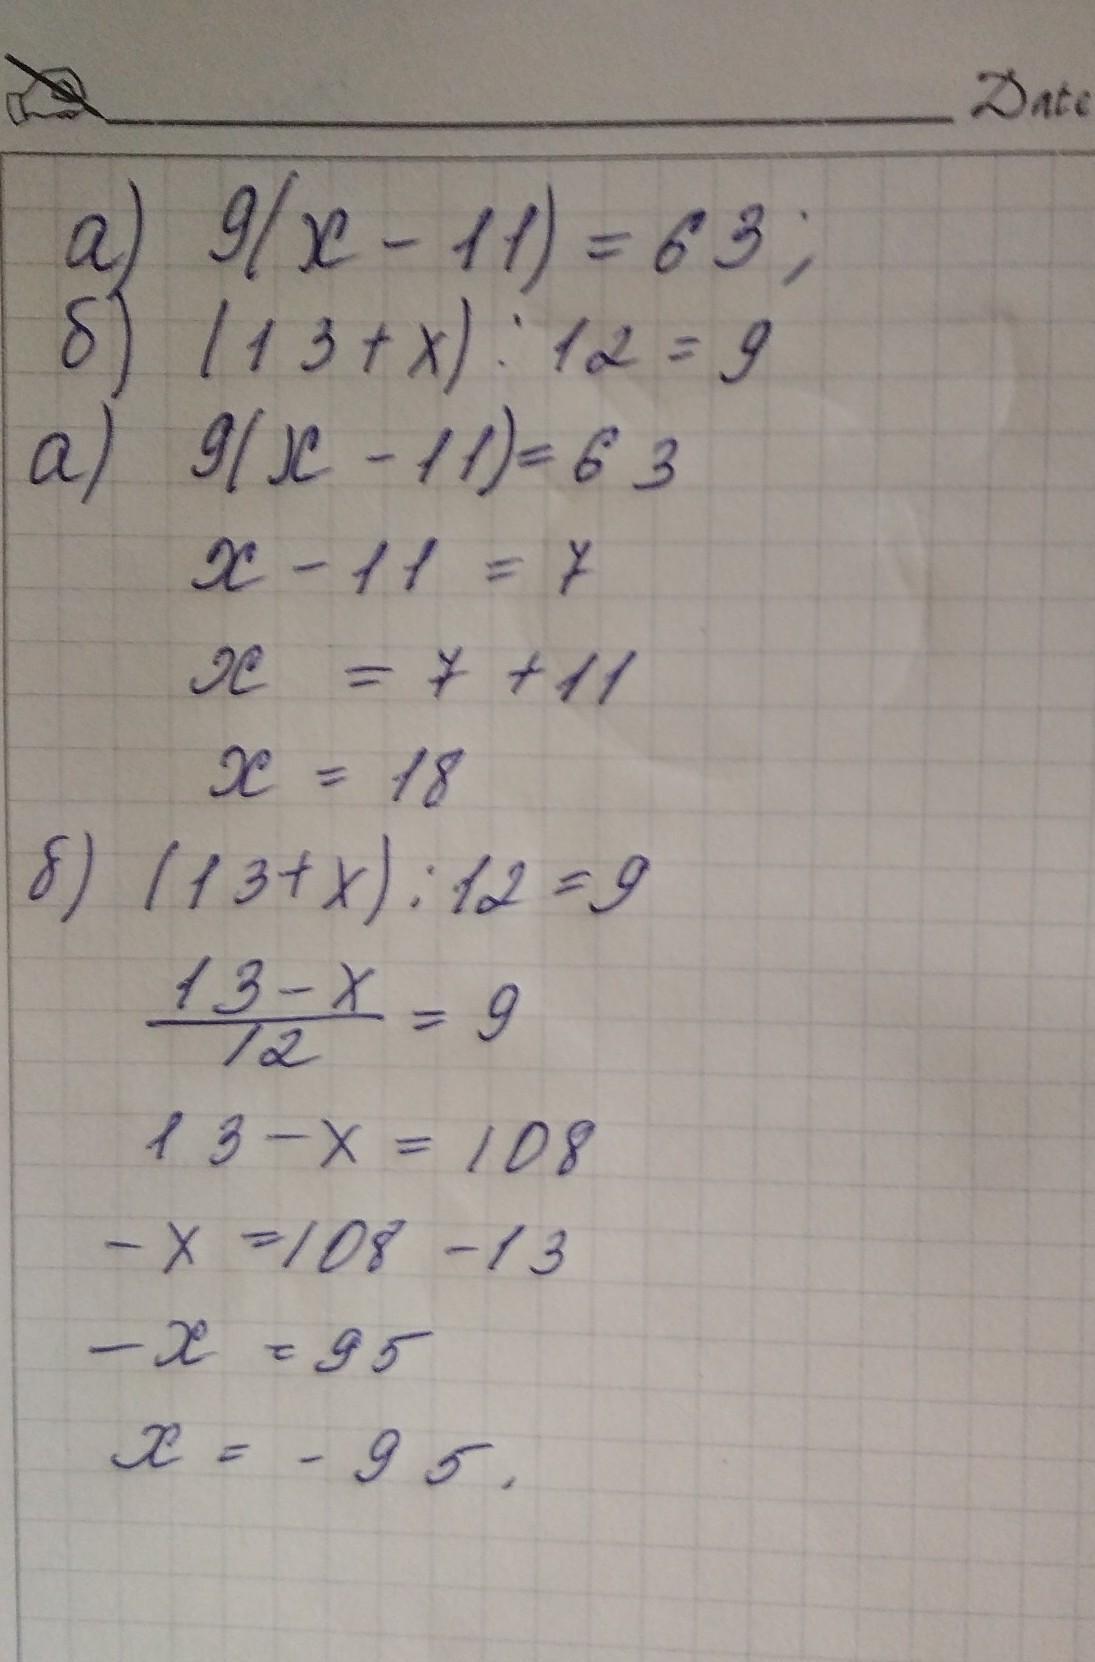 Date
а) 9(x - 11) = 63;
б) (13 + x) : 12 = 9
а) 9(x - 11) = 63
x - 11 = 7
x = 7 + 11
x = 18
б) (13 + x) : 12 = 9
13 - x
12 = 9
13 - x = 108
- x = 108 - 13
- x = 95
x = - 95.